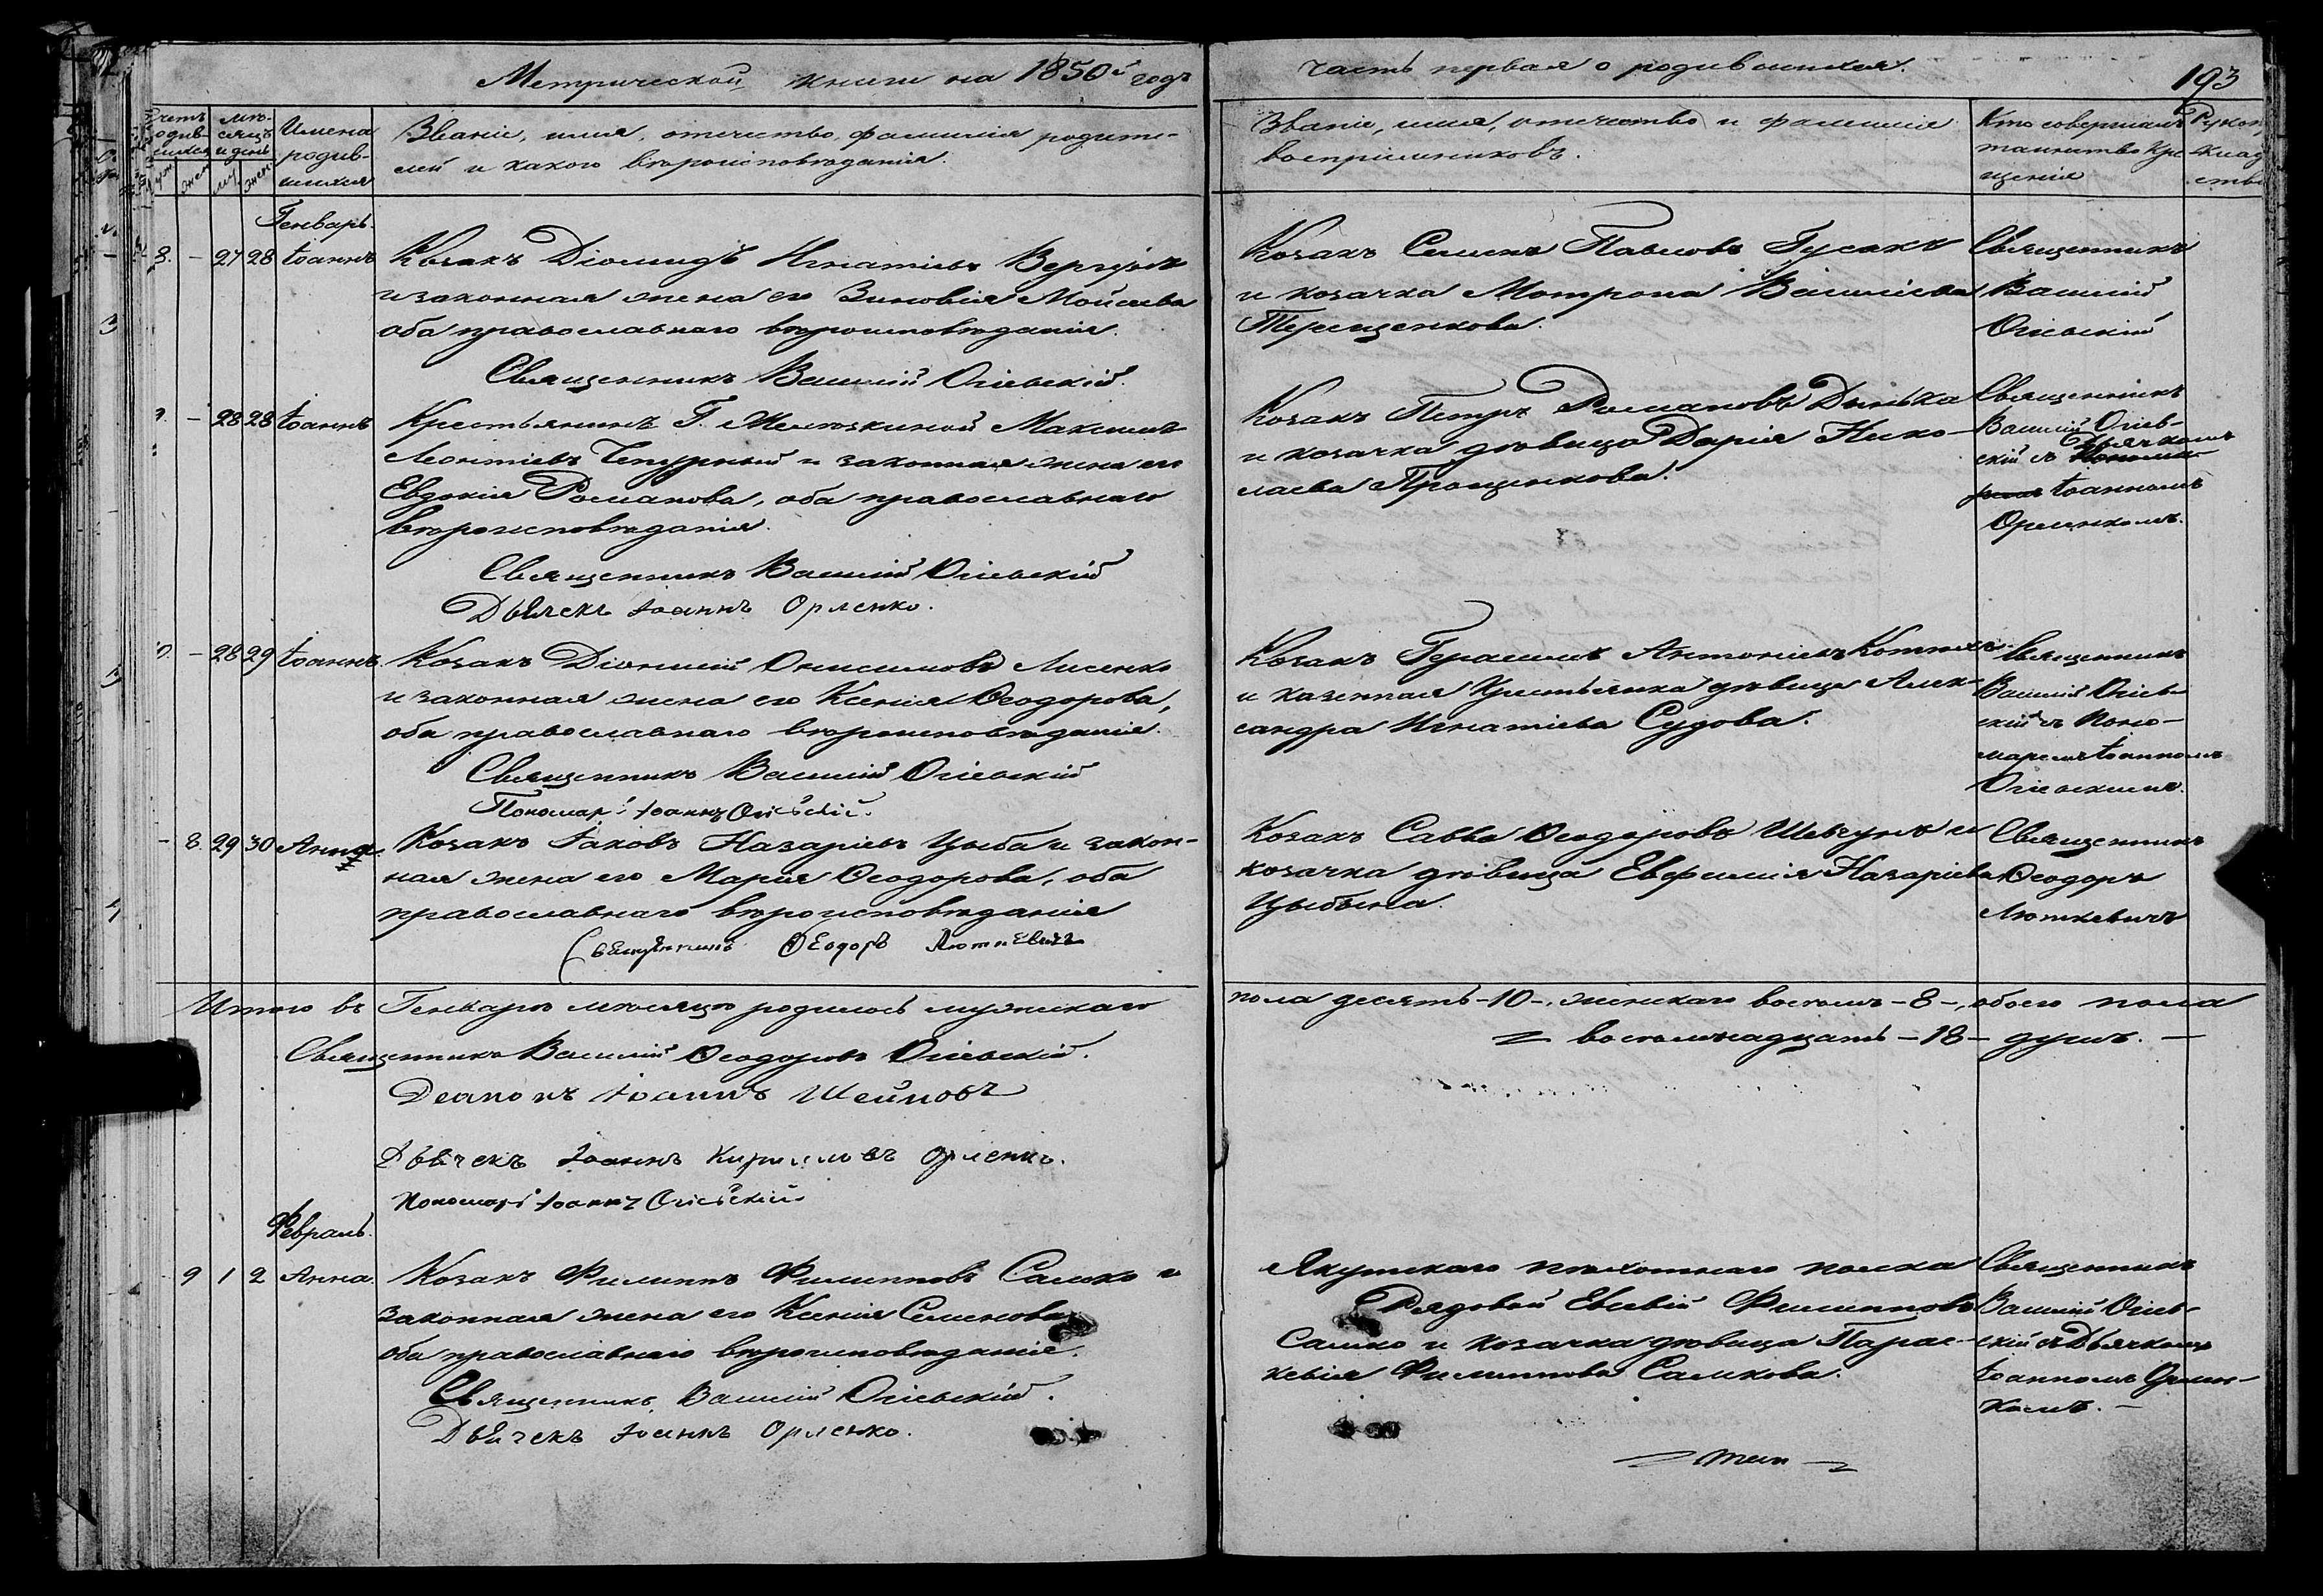 Метрической книги на 1850й годъ
часть первая о родившихся.
193
Имена родив-шихся
Званіе, имя, отчество, фамилія родите-
лей и какого вѣроисповѣданія.
Званіе, имя, отчество и фамилія
воспріемниковъ.
Кто совершалъ
таинство Кре
щенія
Генварь.
8. – 27 28 Іоаннъ
Козакъ Діомидъ Игнатіевъ
и законная жена его Зиновія Мойсеева
оба православнаго вѣроисповѣданія.
Священникъ Василій Огіевскій.
Козакъ Семенъ Павловъ Гусакъ
и козачка Мотрона Василіева
Терещенкова.
Священникъ
Василій
Огіевскій
– 28 28 Іоаннъ
Крестьянинъ Г. Максимъ
Леонтіевъ Чепурный и законная жена его
Евдокія Романова, оба православнаго
вѣроисповѣданія.
Священникъ Василій Огіевскій
Дьячекъ Іоаннъ Орленко.
Козакъ Петръ Романовъ Динька
и козачка дѣвица Дарія Нико-
лаева Прощенкова.
Священникъ
Василій Огіев-
скій съ Дьячкомъ
Іоанномъ
Орленкомъ.
– 28 29 Іоаннъ
Козакъ Діонисій Онисимовъ Лисенко
и законная жена его Ксенія Ѳеодорова,
оба православнаго вѣроисповѣданія.
Священникъ Василій Огіевскій
Пономарь Іоаннъ Огіевскій.
Козакъ Герасимъ Антоніевъ
и казенная крестьянка дѣвица Алек-
сандра Игнатіева Судова.
Священникъ
Василій Огіев-
скій съ Поно-
маремъ Іоанномъ
Огіевскимъ.
– 8. 29 30 Анна.
Козакъ Іаковъ Назаріевъ Цыба и закон-
ная жена его Марія Ѳеодорова, оба
православнаго вѣроисповѣданія
Священникъ Ѳеодоръ Люткевичъ
Козакъ Савва Ѳеодоровъ Шевчунъ и
козачка дѣвица Евфимія Назаріева
Цыбина.
Священникъ
Ѳеодоръ
Люткевичъ
Итого въ Генварѣ мѣсяцѣ родилось мужескаго
пола десять –10–, женскаго восемь –8–, обоего пола
восемьнадцать –18– душъ. –
Священникъ Василій Ѳеодоровъ Огіевскій.
Діаконъ Іоаннъ Шейновъ
Дьячекъ Іоаннъ Кирилловъ Орленко.
Пономарь Іоаннъ Огіевскій
Февраль.
9 1 2 Анна.
Козакъ Филиппъ Филипповъ Самко и
законная жена его Ксенія Семенова
оба православнаго вѣроисповѣданія.
Священникъ Василій Огіевскій.
Дьячекъ Іоаннъ Орленко.
Якутскаго пѣхотнаго полка
Рядовой Евсевій Филипповъ
Самко и козачка дѣвица Парас-
кевія Филиппова Самкова.
Священникъ
Василій Огіев-
скій съ Дьячкомъ
Іоанномъ Орлен-
комъ. –